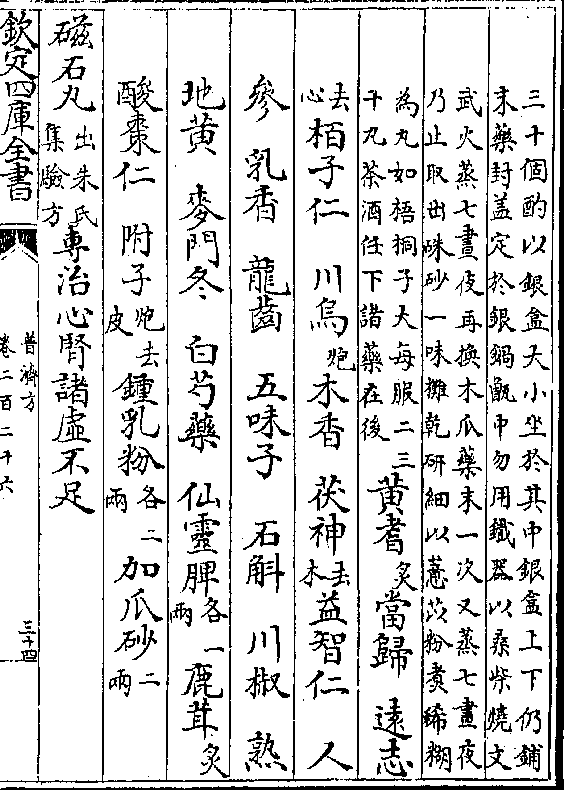 三十個酌以銀盒大小坐於其中銀盒上下仍鋪
末藥封蓋定於銀鍋甑中勿用鐵器以桑柴燒文
武火蒸七晝夜再換木瓜藥末一次又蒸七晝夜
乃止取出硃砂一味攤乾研細以薏苡粉煑稀糊
為丸如梧桐子大每服二三
十丸茶酒任下諸藥在後 黃耆炙 當歸 遠志
去心 栢子仁 川烏炮 木香 茯神去木 益智仁 人
參 乳香 龍齒 五味子 石斛 川椒 熟
地黃 麥門冬 白芍藥 仙靈脾各一兩 鹿茸炙
酸棗仁 附子炮去皮 鍾乳粉各二兩 加爪砂二兩
磁石丸出朱氏集驗方 專治心腎諸虛不足
欽定四庫全書
普濟方
卷二百二十六
三十四